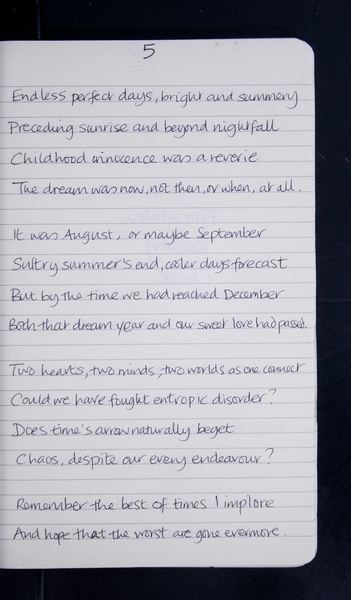 5
Endless perfect days, bright and summery
Preceding sunrise and beyond nightfall
Childhood innocence was a reverie
The dream was now, not then, or when, at all.
It was August, or maybe September
Sultry summer's end, cooler days forecast
But by the time we had reached December
Both that dream year and our sweet love had passed.
Two hearts, two minds, two worlds as one connect
Could we have fought entropic disorder?
Does time's arrow naturally beget
Chaos, despite our every endeavour?
Remember the best of times I implore
And hope that the worst are gone evermore.